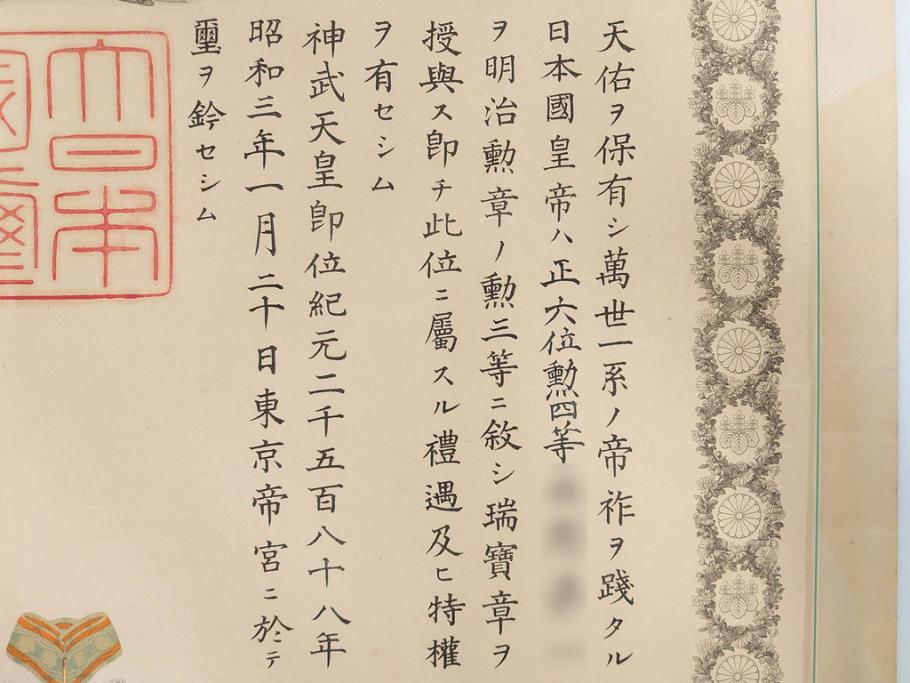 天佑ヲ保有シ萬世一系ノ帝祚ヲ踐タル
日本國皇帝ハ正六位勲四等
ヲ明治勲章ノ勲三等ニ敘シ瑞寶章ヲ
授與ス卽チ此位ニ屬スル禮遇及ヒ特權
ヲ有セシム
神武天皇卽位紀元二千五百八十八年
昭和三年一月二十日東京帝宮ニ於テ
璽ヲ鈐セシム
大日本